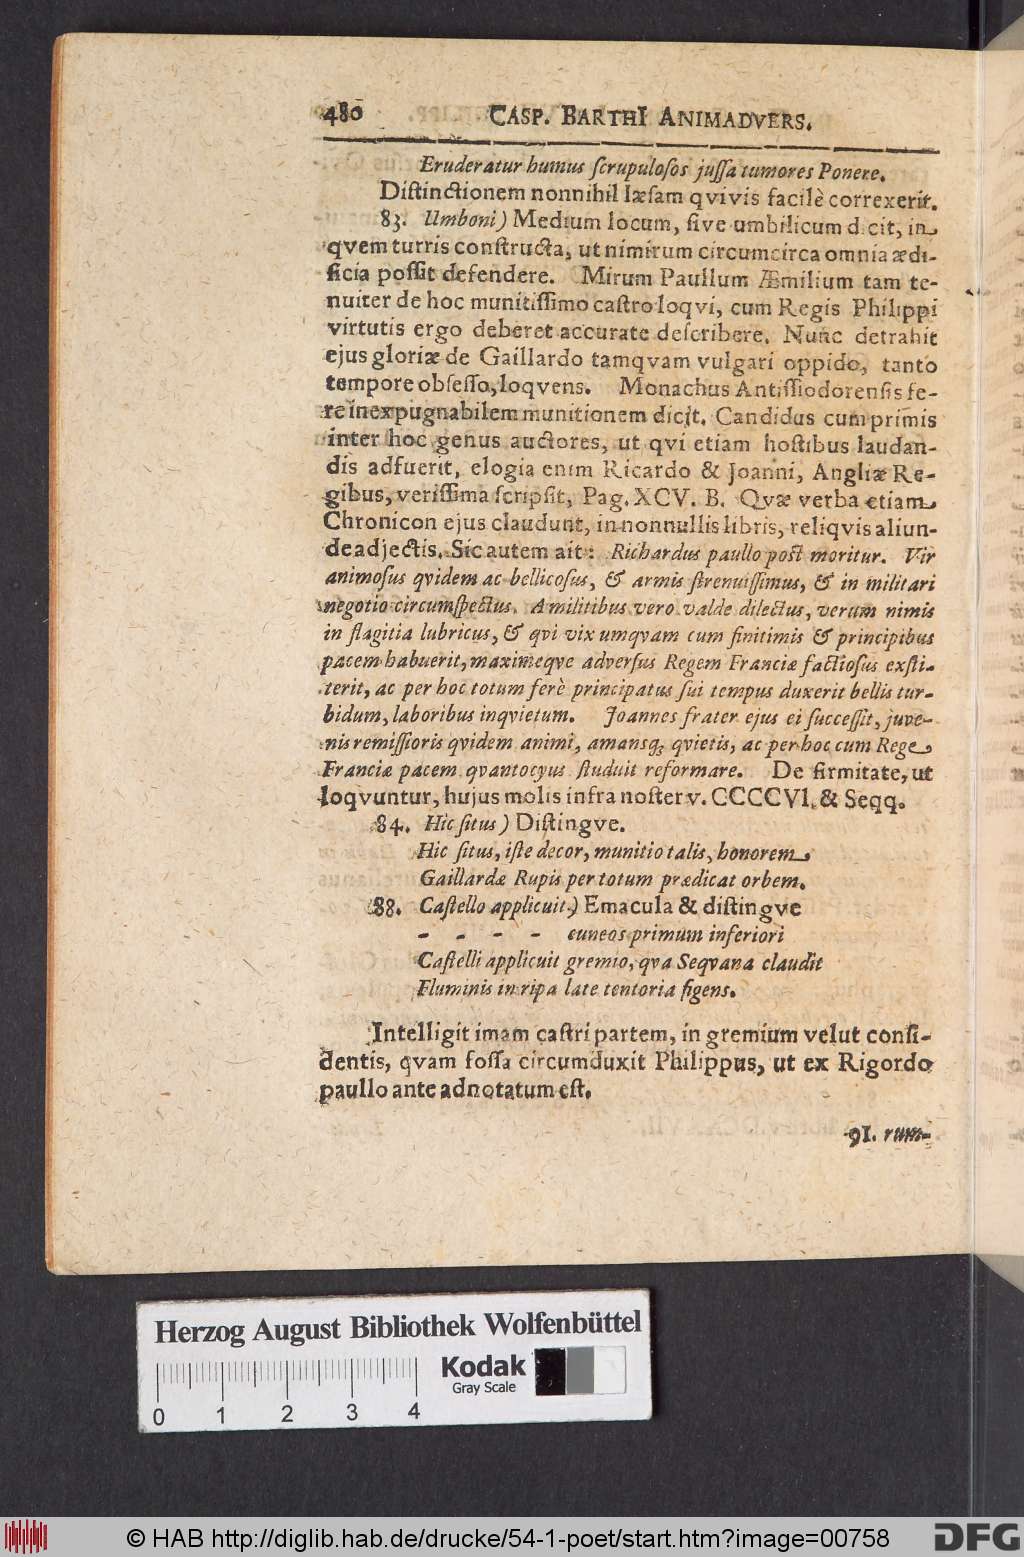 480 CASP. BARTHI ANIMADVERS.
Eruderatur humus ſcrupuloſos juſſa tumores Ponere.
Diſtinctionem nonnihil læſam qvivis facilè correxerit.
83. Umboni) Medium locum, ſive umbilicum dicit, in
qvem turris conſtructa, ut nimirum circumcirca omnia ædi-
ficia poſſit defendere. Mirum Paullum Æmilium tam te-
nuiter de hoc munitiſſimo caſtro loqvi, cum Regis Philippi
virtutis ergo deberet accurate deſcribere. Nunc detrahit
ejus gloriæ de Gaillardo tamqvam vulgari oppido, tanto
tempore obſeſſo, loqvens. Monachus Antiſſiodorenſis fe-
re inexpugnabilem munitionem dicit. Candidus cum primis
inter hoc genus auctores, ut qvi etiam hoſtibus laudan-
dis adfuerit, elogia enim Ricardo & Joanni, Angliæ Re-
gibus, veriſſima ſcripſit, Pag. XCV. B. Qvæ verba etiam
Chronicon ejus claudunt, in nonnullis libris, reliqvis aliun-
de adjectis. Sic autem ait: Richardus paullo poſt moritur. Vir
animoſus qvidem ac bellicoſus, & armis ſtrenuiſſimus, & in militari
negotio circumſpectus. A militibus vero valde dilectus, verum nimis
in flagitia lubricus, & qvi vix umqvam cum finitimis & principibus
pacem habuerit, maximeqve adverſus Regem Franciæ factioſus exſti-
terit, ac per hoc totum ferè principatus ſui tempus duxerit bellis tur-
bidum, laboribus inqvietum. Joannes frater ejus ei ſucceſſit, juve-
nis remiſſioris qvidem animi, amansq; qvietis, ac per hoc cum Rege
Franciæ pacem qvantocyus ſtuduit reformare. De firmitate, ut
loqvuntur, hujus molis infra noſter v. CCCCVI. & Seqq.
84. Hic ſitus) Diſtingve.
Hic ſitus, iſte decor, munitio talis, honorem
Gaillardæ Rupis per totum prædicat orbem.
88. Caſtello applicuit.) Emacula & diſtingve
- - - - cuneos primum inferiori
Caſtelli applicuit gremio, qva Seqvana claudit
Fluminis in ripa late tentoria figens.
Intelligit imam caſtri partem, in gremium velut conſi-
dentis, qvam foſſa circumduxit Philippus, ut ex Rigordo
paullo ante adnotatum eſt.
91. rum-
Herzog August Bibliothek Wolfenbüttel
Kodak
Gray Scale
0 1 2 3 4
© HAB http://diglib.hab.de/drucke/54-1-poet/start.htm?image=00758
DFG